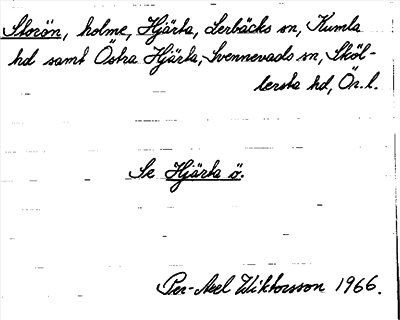 Storön, holme, Hjärta, Lerbäcks sn, Kumla
hd samt Östra Hjärta, Svennevads sn, Sköl-
lersta hd, Ör. l.
Se Hjärta ö.
Per-Axel Wiktorsson 1966.